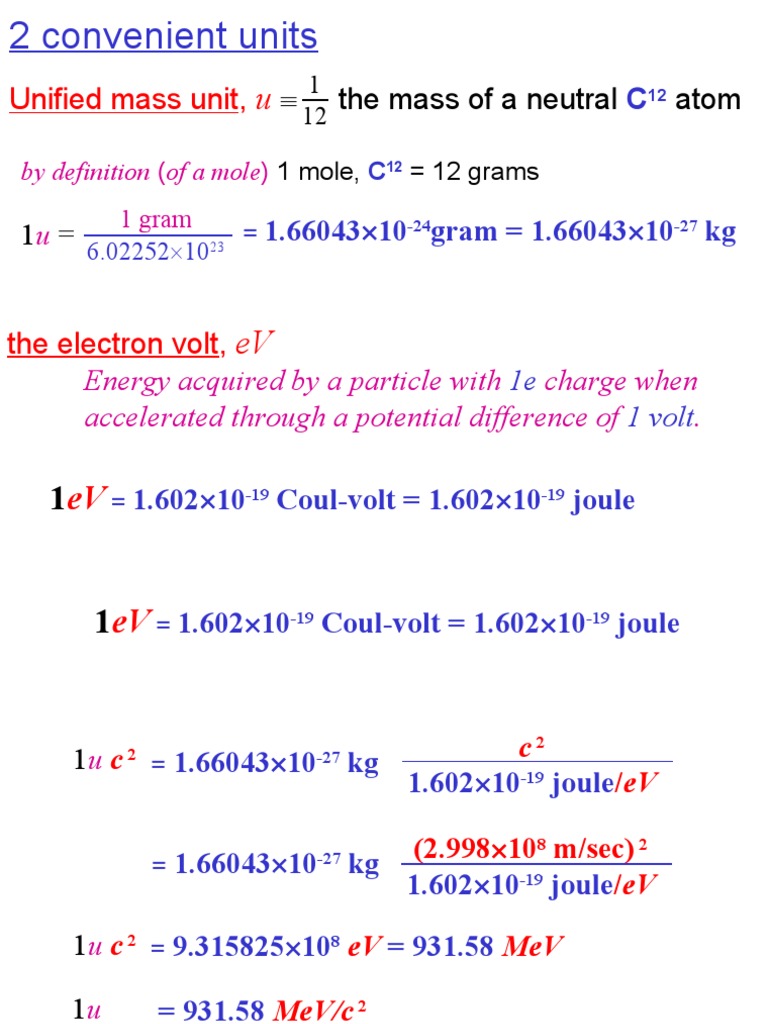 2 convenient units
Unified mass unit, u ≡ 1/12 the mass of a neutral C¹² atom
by definition (of a mole) 1 mole, C¹² = 12 grams
1u = 1 gram / 6.02252×10²³ = 1.66043×10⁻²⁴gram = 1.66043×10⁻²⁷ kg
the electron volt, eV
Energy acquired by a particle with 1e charge when
accelerated through a potential difference of 1 volt.
1eV = 1.602×10⁻¹⁹ Coul-volt = 1.602×10⁻¹⁹ joule
1eV = 1.602×10⁻¹⁹ Coul-volt = 1.602×10⁻¹⁹ joule
1u c² = 1.66043×10⁻²⁷ kg c² / 1.602×10⁻¹⁹ joule/eV
= 1.66043×10⁻²⁷ kg (2.998×10⁸ m/sec)² / 1.602×10⁻¹⁹ joule/eV
1u c² = 9.315825×10⁸ eV = 931.58 MeV
1u = 931.58 MeV/c²